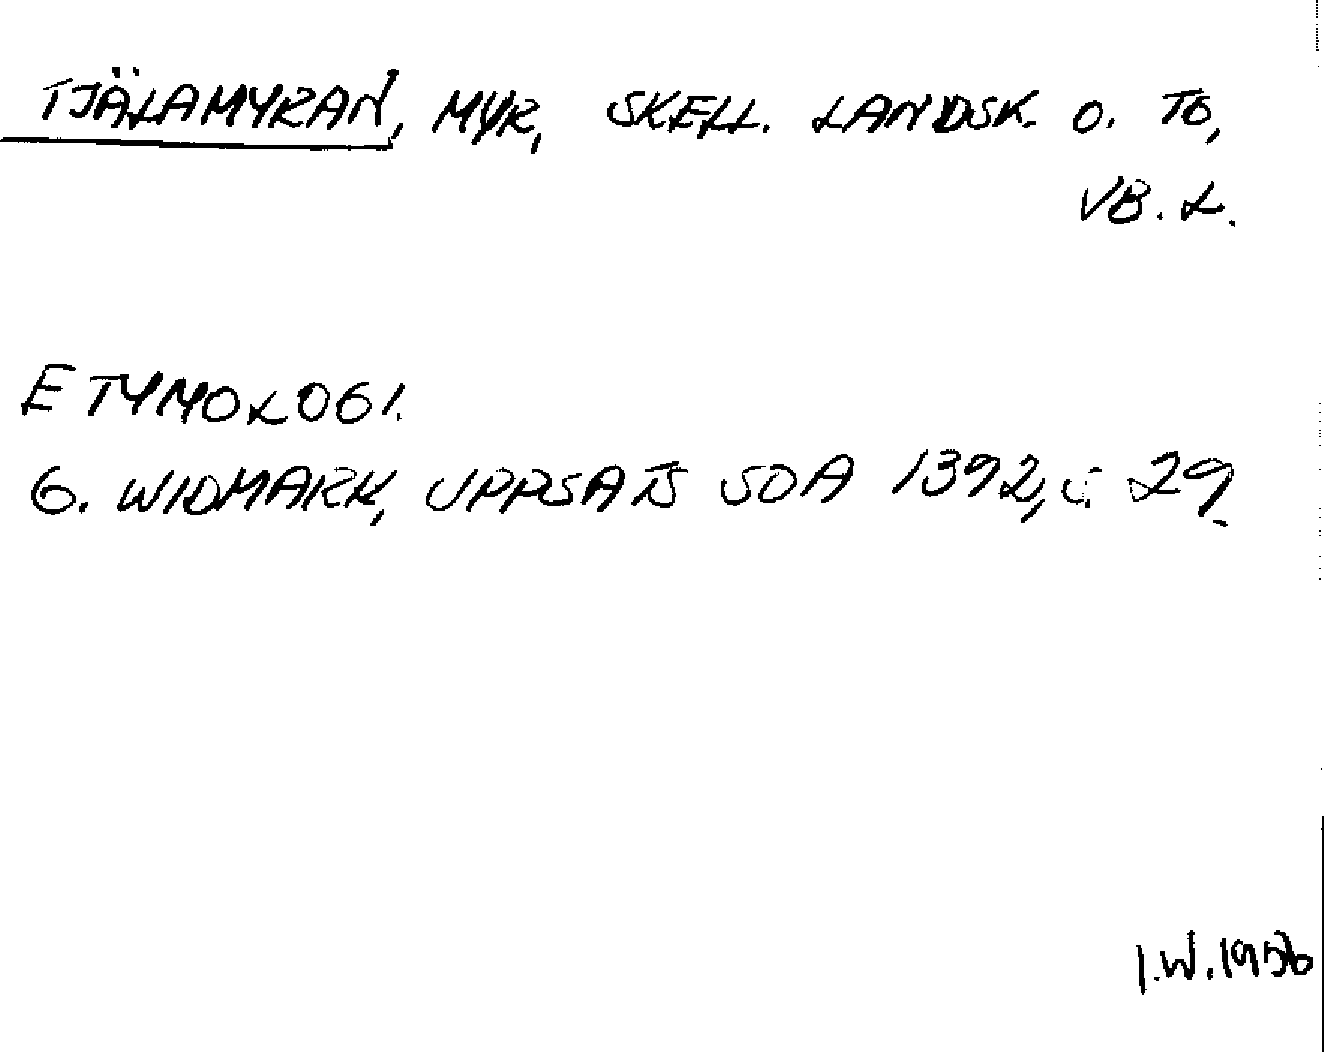 TJÄLAMYRAN, MYR, SKELL. LANDSK. O. TG,
VB. L.
ETYMOLOGI.
G. WIDMARK, UPPSATS SOA 1392, S. 29.
I.W. 1956